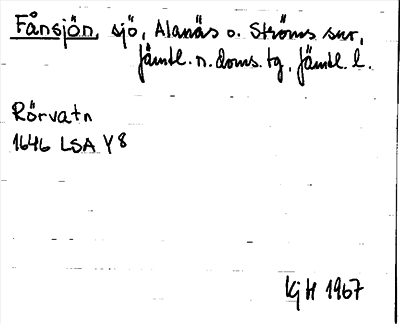 Fånsjön, sjö, Alanäs o. Ströms snr,
Jämtl. n. doms. tg, Jämtl. l.
Rörvatn
1646 LSA Y8
KjH 1967